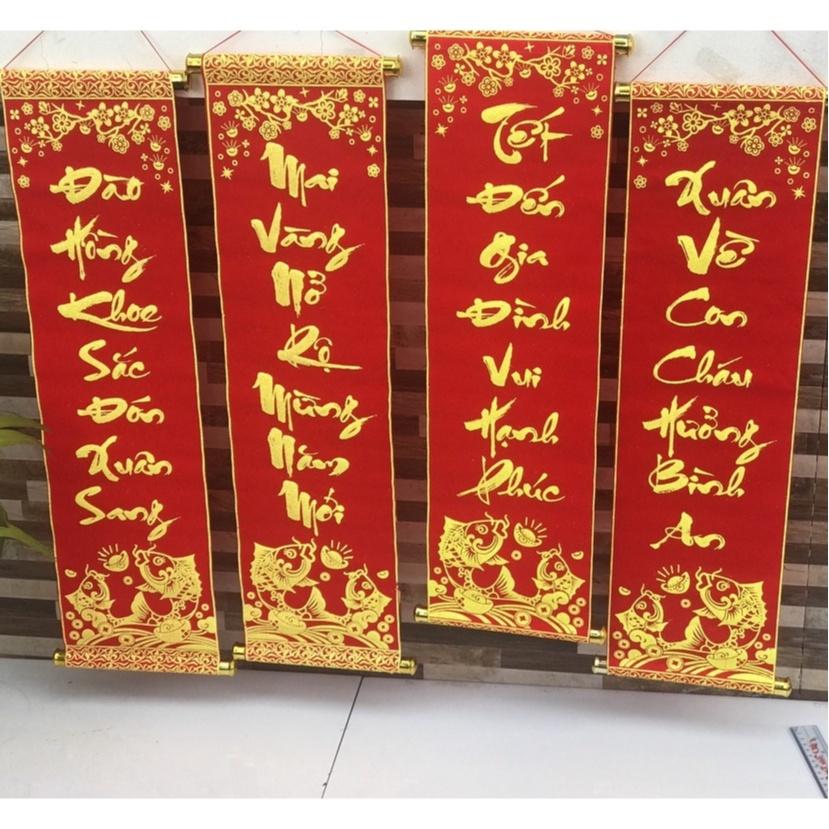 Đào
Hồng
Khoe
Sắc
Đón
Xuân
Sang
Mai
Vàng
Nở
Rộ
Mừng
Năm
Mới
Tết
Đến
Gia
Đình
Vui
Hạnh
Phúc
Xuân
Về
Con
Cháu
Hưởng
Bình
An